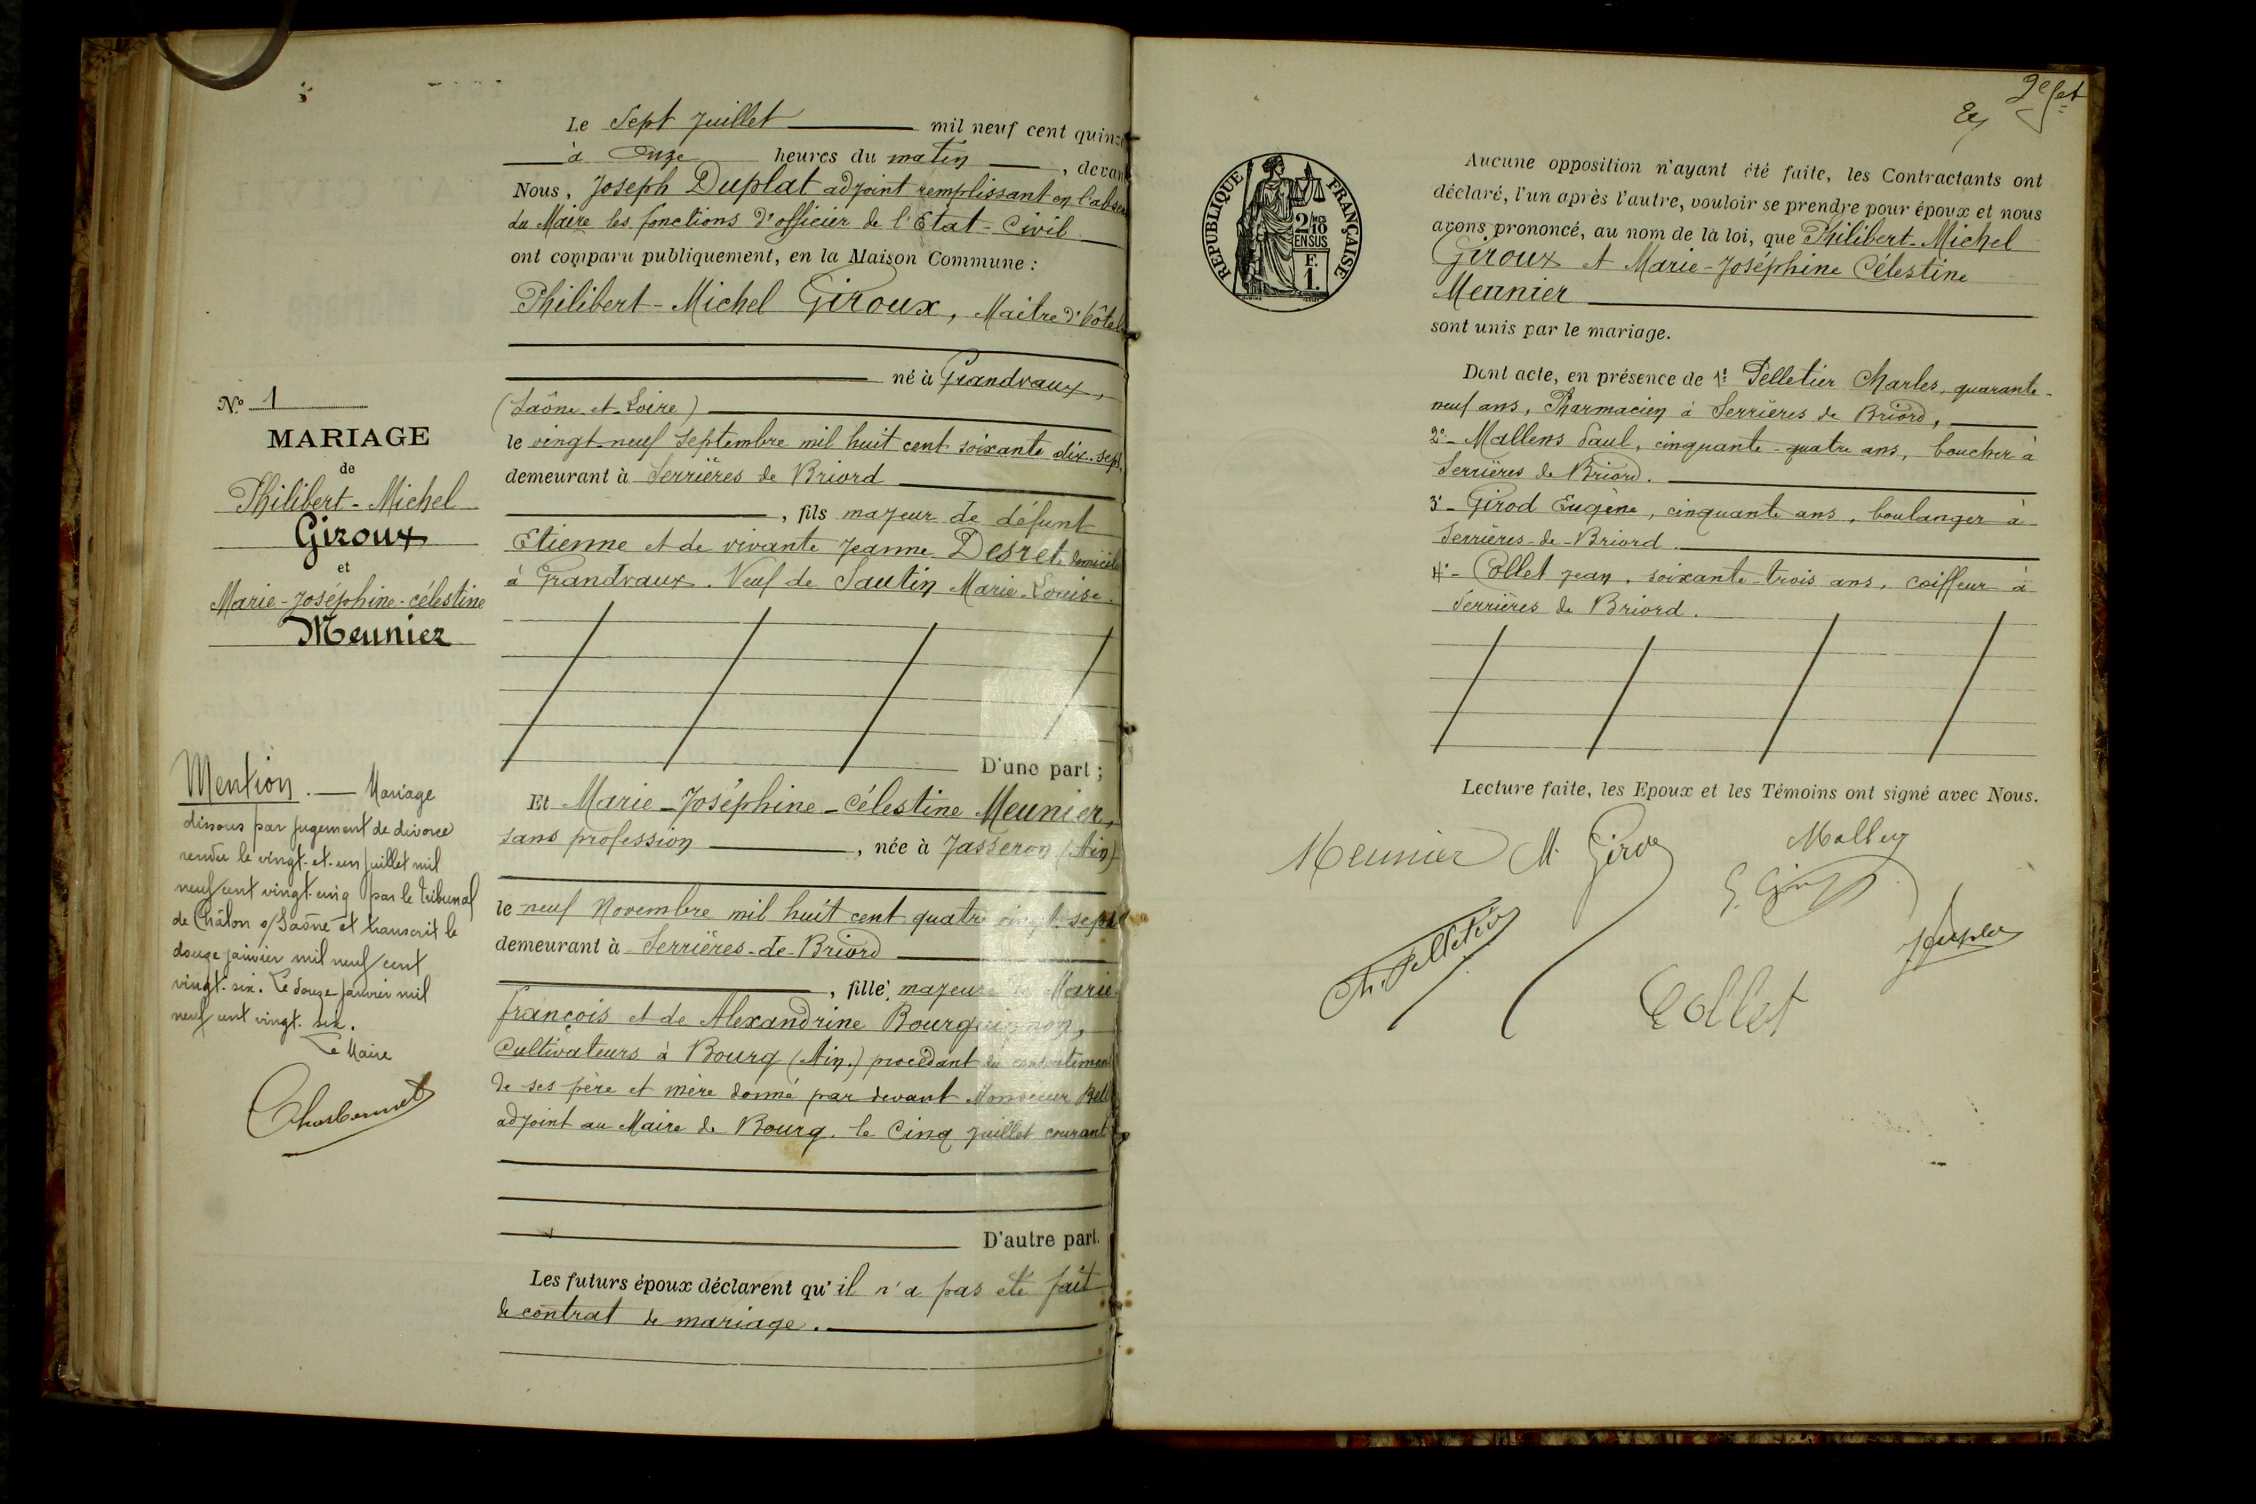 Le Sept Juillet mil neuf cent quinze
à Onze heures du matin, devant
Nous, Joseph Duplat adjoint remplissant en l'absence
du Maire les fonctions d'officier de l'Etat-Civil
ont comparu publiquement, en la Maison Commune :
Philibert-Michel Giroux, Maitre d'hôtel
né à Grandvaux,
(Saône-et-Loire)
le vingt-neuf Septembre mil huit cent soixante dix-sept,
demeurant à Serrières de Briord
, fils majeur de défunt
Etienne et de vivante Jeanne Desret, domiciliée
à Grandvaux. Veuf de Sautin Marie-Louise.
D'une part ;
Et Marie-Joséphine-Célestine Meunier,
sans profession, née à Jasseron (Ain)
le neuf Novembre mil huit cent quatre vingt-sept
demeurant à Serrières-de-Briord
, fille majeure de Marie
françois et de Alexandrine Bourguignon,
Cultivateurs à Bourg (Ain.) procédant du consentement
de ses père et mère donné par devant Monsieur
adjoint au Maire de Bourg. le Cinq juillet courant
D'autre part.
Les futurs époux déclarent qu'il n'a pas été fait
de contrat de mariage.
No 1
MARIAGE
de
Philibert-Michel
Giroux
et
Marie-Joséphine-célestine
Meunier
Mention. — Mariage
dissous par jugement de divorce
rendu le vingt-et-un juillet mil
neuf cent vingt-cinq par le tribunal
de Châlon s/Saône et transcrit le
douze janvier mil neuf cent
vingt-six. Le douze janvier mil
neuf cent vingt-six.
Le Maire
Charbonnet
REPUBLIQUE FRANÇAISE
2/10
EN SUS
F.
1.
Aucune opposition n'ayant été faite, les Contractants ont
déclaré, l'un après l'autre, vouloir se prendre pour époux et nous
avons prononcé, au nom de la loi, que Philibert-Michel
Giroux et Marie-Joséphine Célestine
Meunier
sont unis par le mariage.
Dont acte, en présence de 1° Pelletier Charles, quarante-
neuf ans, Pharmacien à Serrières de Briord,
2°- Mallens Paul, cinquante-quatre ans, boucher à
Serrières de Briord.
3°- Girod Eugène, cinquante ans, boulanger à
Serrières-de-Briord.
4°- Collet Jean, soixante-trois ans, coiffeur à
Serrières de Briord.
Lecture faite, les Epoux et les Témoins ont signé avec Nous.
Meunier M. Giroux
Ch. Pelletier
Collet